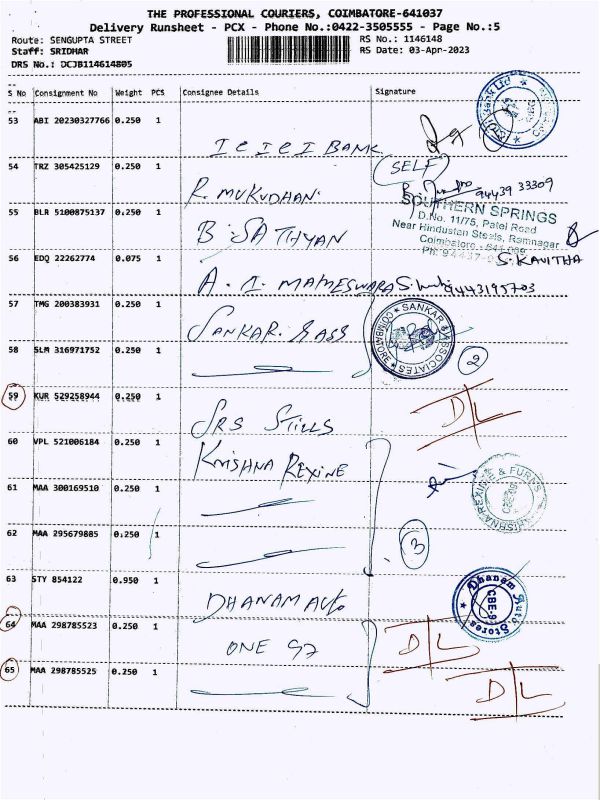 THE PROFESSIONAL COURIERS, COIMBATORE-641037
Delivery Runsheet - PCX - Phone No.:0422-3505555 - Page No.:5
Route: SENGUPTA STREET RS No.: 1146148
Staff: SRIDHAR RS Date: 03-Apr-2023
DRS No.: DCJB114614805
S No Consignment No Weight PCS Consignee Details Signature
53 ABI 20230327766 0.250 1
ICICI BANK
(SELF)
54 TRZ 305425129 0.250 1
R. MUKUDHAN.
94439 33309
SOUTHERN SPRINGS
D.No. 11/75, Patel Road
Near Hindustan Steels, Ramnagar
Coimbatore - 641 009
55 BLR 5100875137 0.250 1
B. SATHYAN
S. KAVITHA
56 EDQ 22262774 0.075 1
A. I. MAMESWARA 9443195703
57 TMG 200383931 0.250 1
SANKAR. SASS
SANKAR & ASSOCIATES
COIMBATORE
58 SLM 316971752 0.250 1
2
59 KUR 529258944 0.250 1
SRS STILLS
D/L
60 VPL 521006184 0.250 1
KRISHNA REXINE
KRISHNA REXINE & FURNS
61 MAA 300169510 0.250 1
62 MAA 295679885 0.250 1
3
63 STY 854122 0.950 1
DHANAM AUTO
Dhanam Auto Stores
CBE-9
64 MAA 298785523 0.250 1
ONE 97
D/L
65 MAA 298785525 0.250 1
D/L